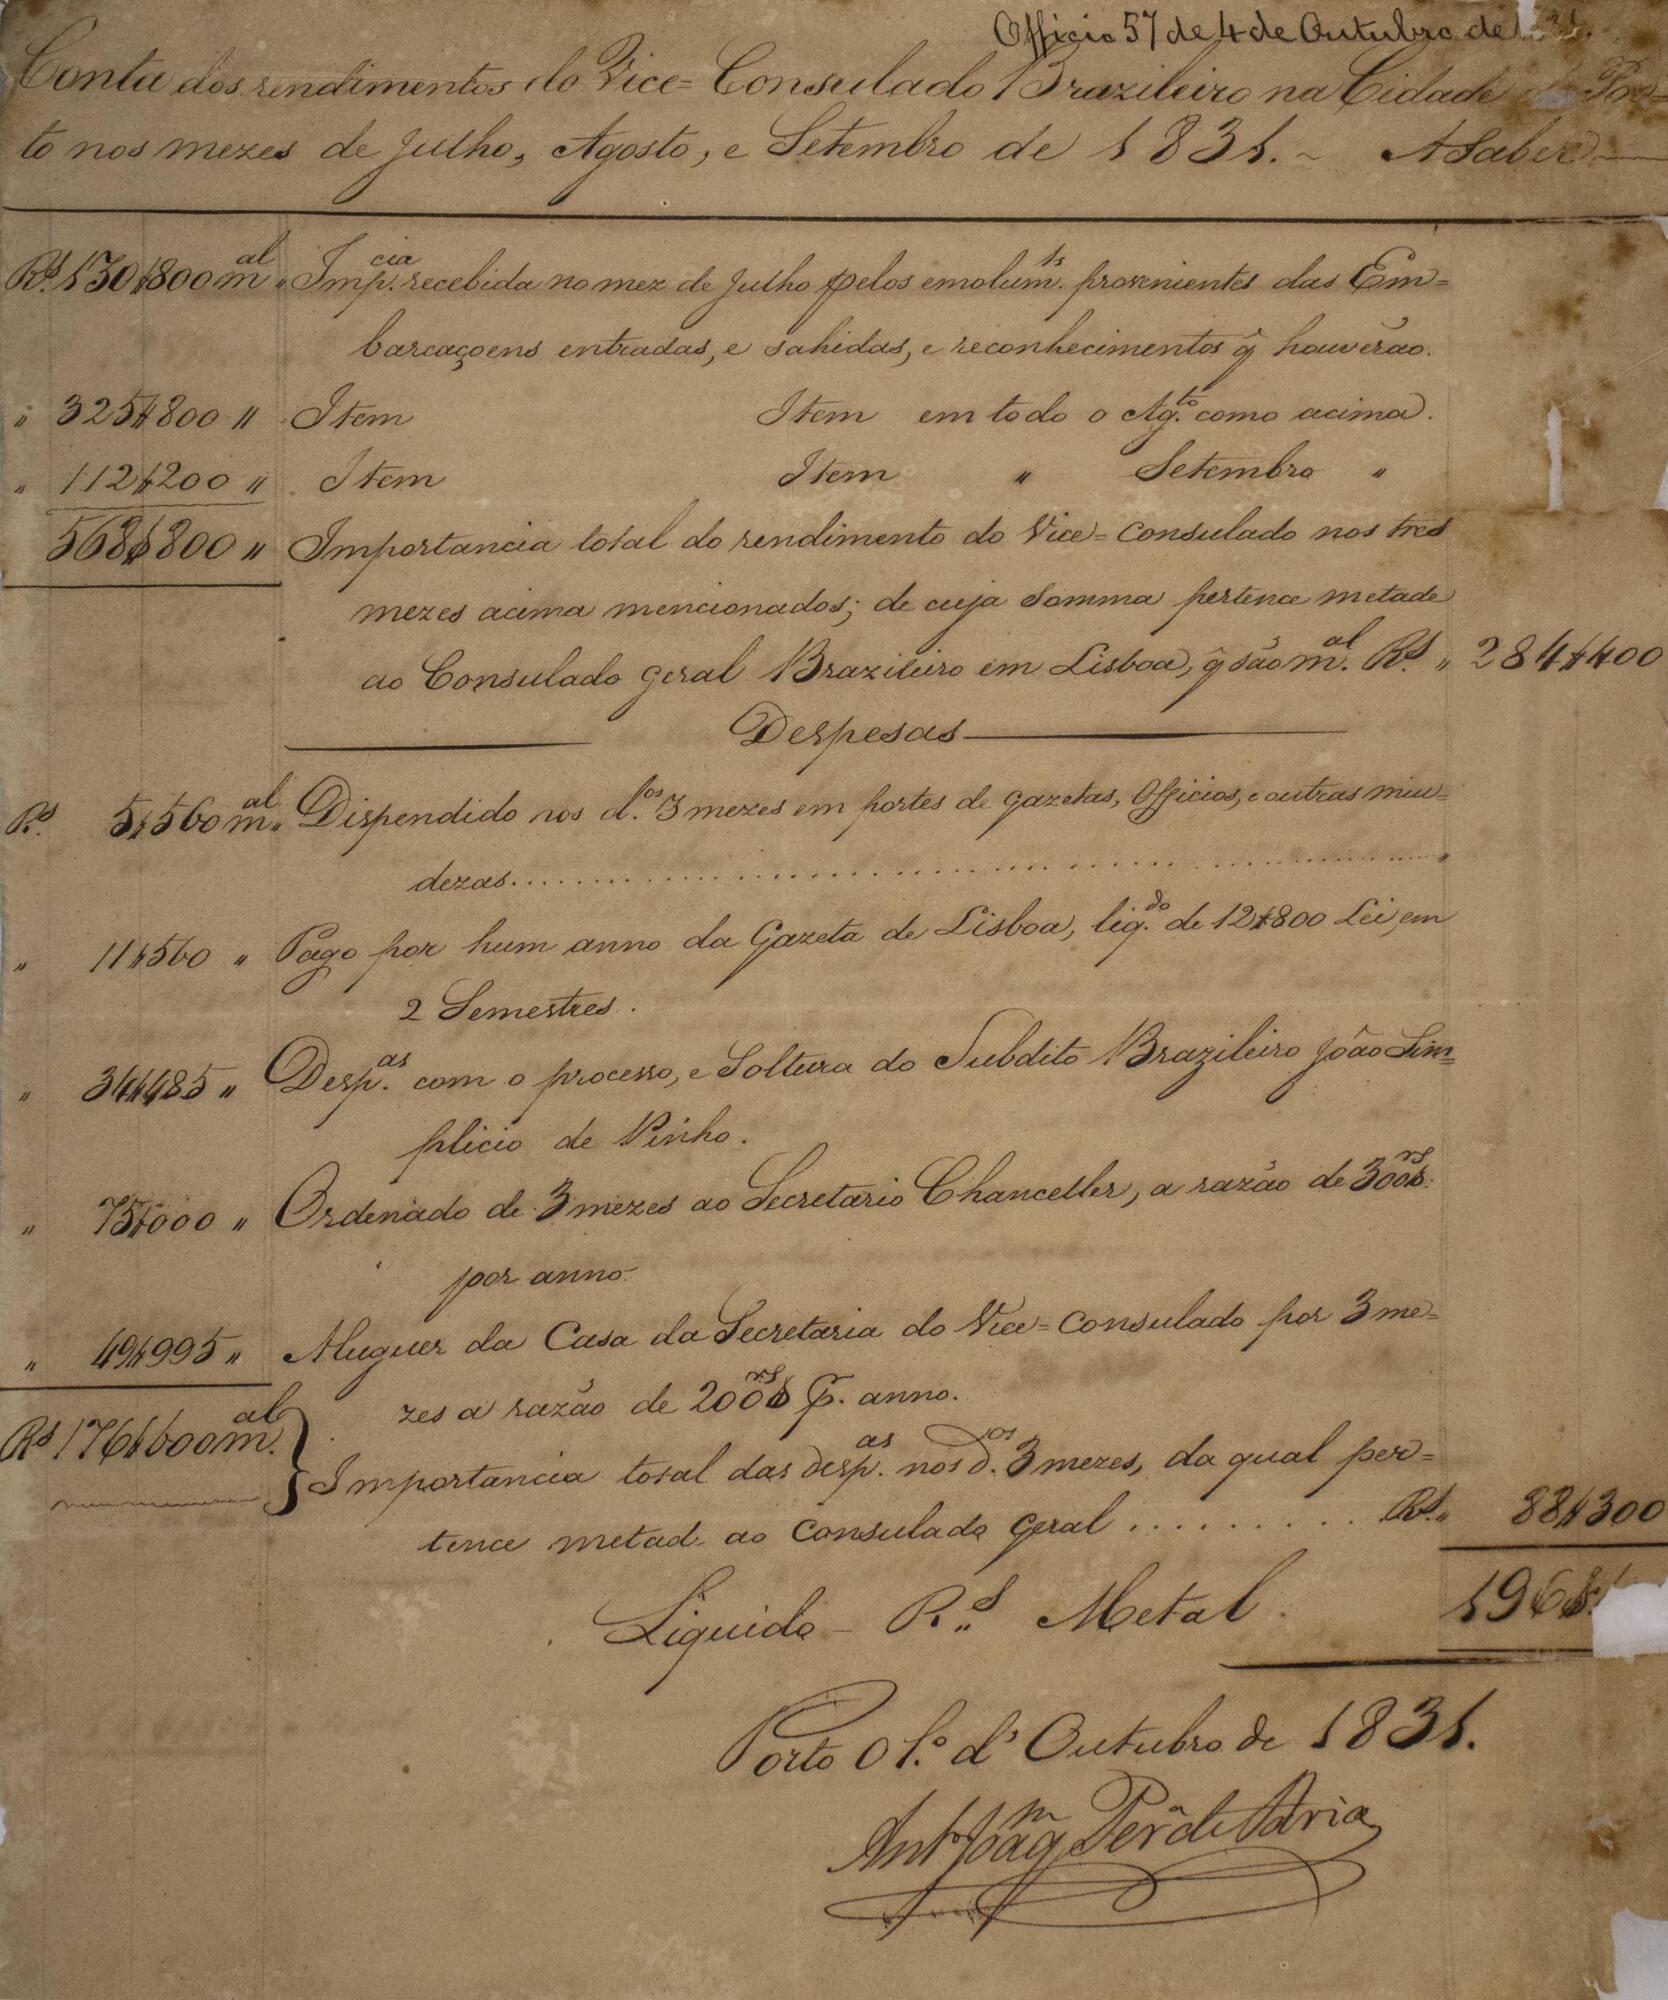 Officio 57 de 4 de Outubro de
Conta dos rendimentos do Vice=Consulado Brazileiro na Cidade do Por=
to nos mezes de Julho, Agosto, e Setembro de 1831. ~ A Saber
Rs. 130$800 mal " Impcia. recebida no mez de Julho pelos emolumts. provenientes das Em=
barcaçoens entradas, e sahidas, e reconhecimentos q̃ houverão.
" 325$800 " Item Item em todo o Agto. como acima.
" 112$200 " Item Item " Setembro "
568$800 " Importancia total do rendimento do Vice=Consulado nos tres
mezes acima mencionados; de cuja somma pertence metade
ao Consulado geral Brazileiro em Lisboa, q̃ são mal. Rs. " 284$400
Despesas
Rs. 5$560 mal " Dispendido nos dtos. 3 mezes em portes de gazetas, Officios, e outras miu=
dezas.
" 11$560 " Pago por hum anno da Gazeta de Lisboa, liqdo. de 12$800 Lei, em
2 Semestres.
" 34$485 " Despas. com o processo, e Soltura do Subdito Brazileiro João Sim=
plicio de Pinho.
" 75$000 " Ordenado de 3 mezes ao Secretario Chanceller, a razão de 300$rs.
por anno.
" 49$995 " Aluguer da Casa da Secretaria do Vice=Consulado por 3 me=
zes a razão de 200$rs p. anno.
Rs 176$600 mal. Importancia total das desp.as nos d.os 3 mezes, da qual per=
tence metade ao Consulado geral .......... Rs. " 88$300
Liquido – Rs. Metal 196$
Porto o 1.º d' Outubro de 1831.
Anto. Joaqm Perª de Faria